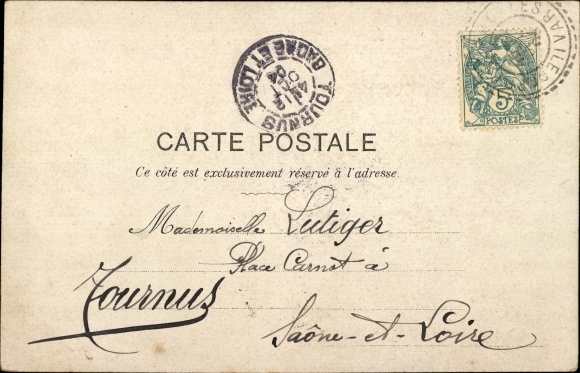 TOURNUS SAONE-ET-LOIRE
04
5c
POSTES
CARTE POSTALE
Ce côté est exclusivement réservé à l'adresse.
Mademoiselle Lutiger
Place Carnot à
Tournus
Saône-et-Loire